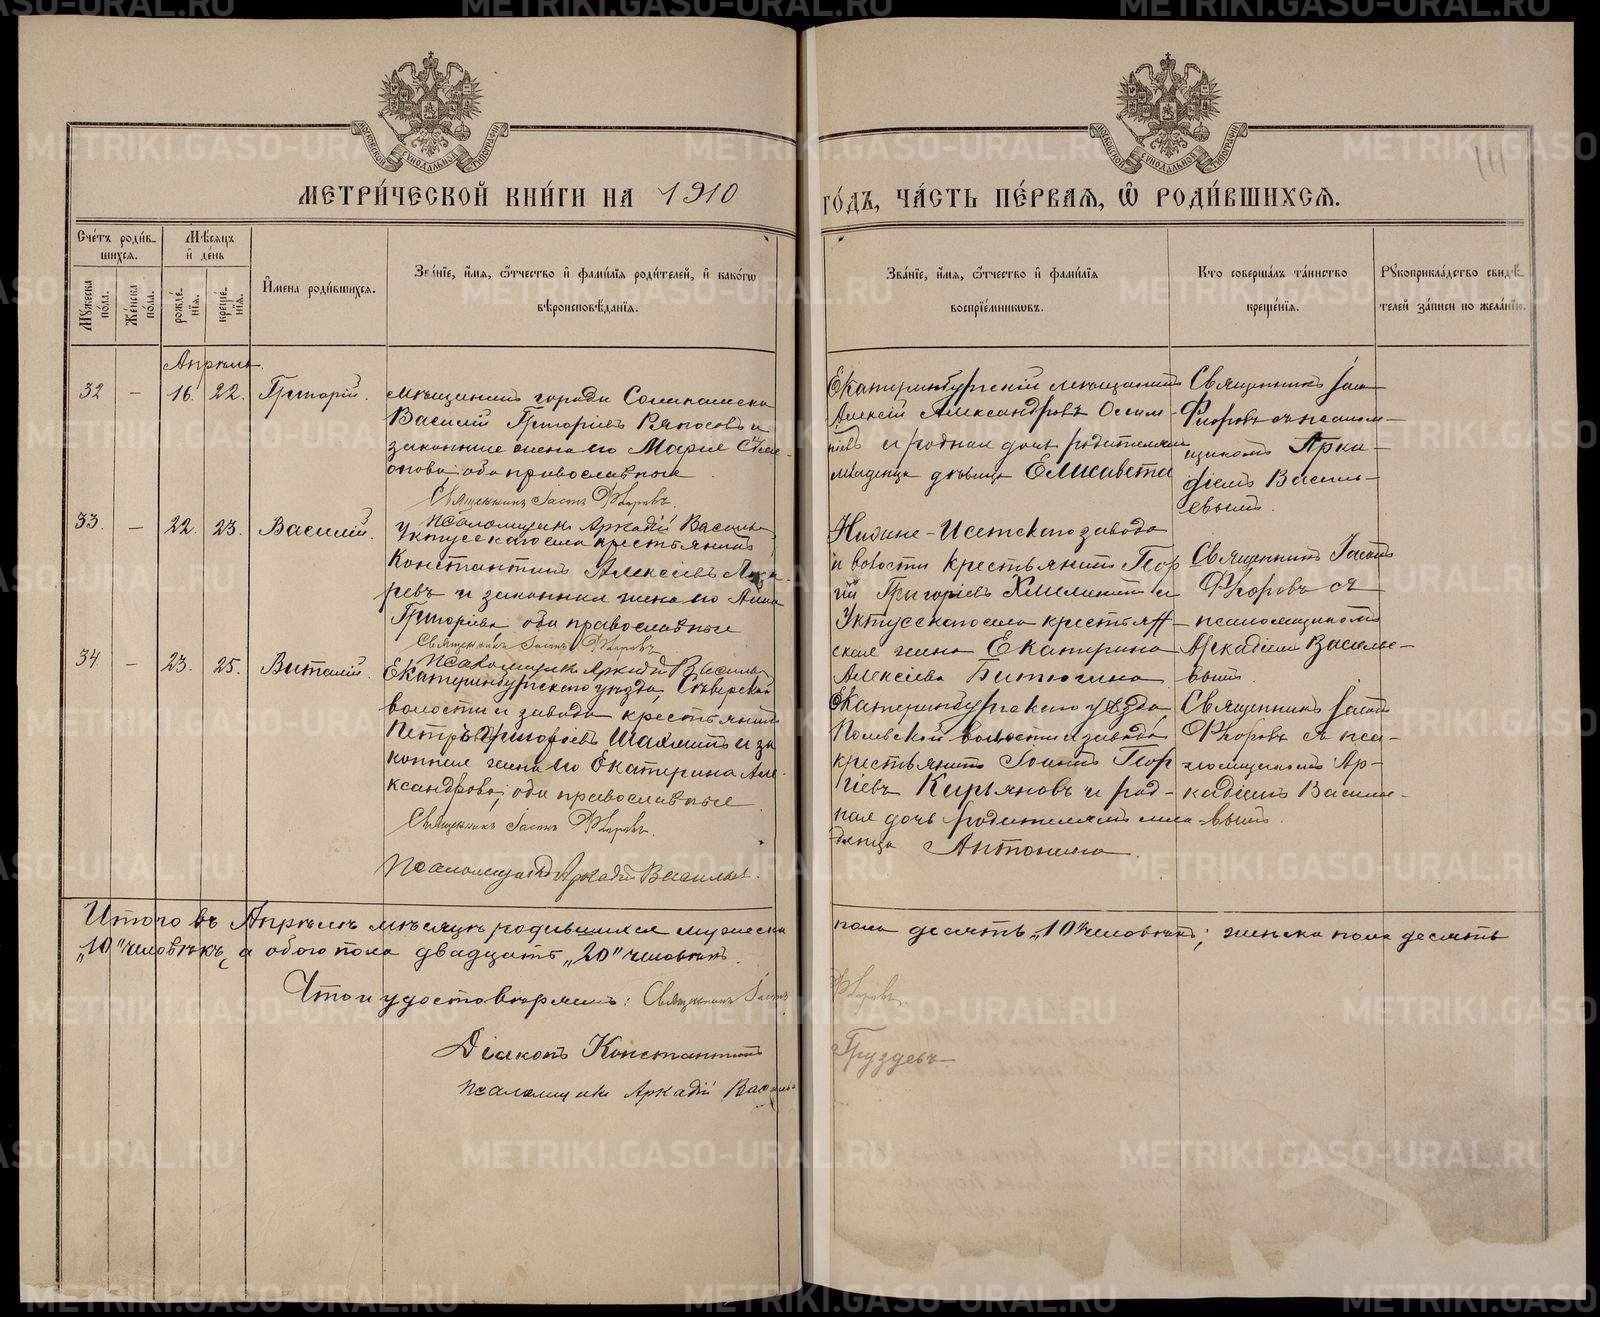 МЕТРИ́ЧЕСКОЙ КНИ́ГИ НА 1910
ГО́ДЪ, ЧА́СТЬ ПЕ́РВАЯ, Ѡ҆ РОДИ́ВШИХСЯ.
Сче́тъ роди́в-
шихся.
Мѣ́сяцъ
и҆ де́нь
Му́жеска
по́ла.
Же́нска
по́ла.
рожде́-
нїя.
креще́-
нїя.
И҆мена роди́вшихся.
Зва́нїе, и҆́мя, ѻ҆́тчество и҆ фами́лїя роди́телей, и҆ како́гѡ
вѣроисповѣ́данїя.
Зва́нїе, и҆́мя, ѻ҆́тчество и҆ фами́лїя
воспрїе́мниковъ.
Кто соверша́лъ та́инство
креще́нїя.
Рꙋкоприкла́дство свидѣ́-
телей за́писи по жела́нїю.
Апрѣль.
32 – 16. 22. Григорій.
мѣщанинъ города Соликамска
Василій Григоріевъ Вяпосовъ и
законная жена его Марія Симе-
онова, оба православные.
Священникъ Іаковъ Флоровъ.
Псаломщикъ Аркадій Васильевъ
Екатеринбургскій мѣщанинъ
Алексій Александровъ
и родная дочь родителямъ
младенца дѣвица Елисавета
Священникъ Іаковъ
Флоровъ съ псалом-
щикомъ Арка-
діемъ Василь-
евымъ.
33. – 22. 23. Василій.
Уктусскаго села крестьянинъ
Константинъ Алексіевъ Лаза-
ревъ и законная жена его Анна
Григоріева, оба православные
Священникъ Іаковъ Флоровъ
Псаломщикъ Аркадій Васильевъ
Нижне-Исетскаго завода
и волости крестьянинъ Геор
гій Григоріевъ и
Уктусскаго села крестьян-
ская жена Екатерина
Алексіева Битюгина
Священникъ Іаковъ
Флоровъ съ
псаломщикомъ
Аркадіемъ Василье-
вымъ.
34 – 23. 25. Виталій.
Екатеринбургскаго уѣзда, Сѣверской
волости и завода крестьянинъ
Петръ Григорьевъ Шахминъ и за
конная жена его Екатерина Але-
ксандрова, оба православные.
Священникъ Іаковъ Флоровъ.
Псаломщикъ Аркадій Васильевъ.
Екатеринбургскаго уѣзда
Полевской волости и завода
крестьянинъ Іоаннъ Геор
гіевъ Кирьяновъ и род-
ная дочь родителямъ мла-
денца Антонина.
Священникъ Іаковъ
Флоровъ съ пса-
ломщикомъ Ар-
кадіемъ Василье-
вымъ.
Итого въ Апрѣлѣ мѣсяцѣ родившихся мужеска
пола десять „10“ человѣкъ; женска пола десять
„10“ человѣкъ, а обоего пола двадцать „20“ человѣкъ.
Что и удостовѣряемъ: Священникъ Іаковъ
Флоровъ.
Діаконъ Константинъ
Груздевъ
Псаломщикъ Аркадій Васильевъ
METRIKI.GASO-URAL.RU